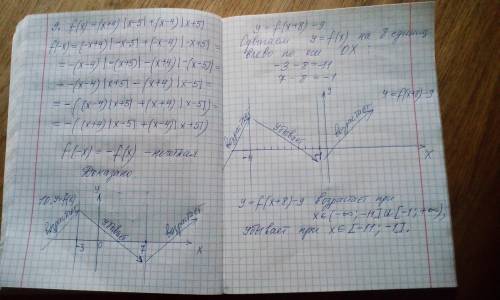 9. f(x) = (x+4)|x-5| + (x-4)|x+5|
f(-x) = (-x+4)|-x-5| + (-x-4)|-x+5| =
= -(x-4)|-(x+5)| - (x+4)|-(x-5)| =
= -(x-4)|x+5| - (x+4)|x-5| =
= -((x-4)|x+5| + (x+4)|x-5|) =
= -((x+4)|x-5| + (x-4)|x+5|)
f(-x) = -f(x) - нечетная
Доказано
10. y=f(x)
y
возрастает
убывает
возрастает
-3
0
7
x
y = f(x+8)-9
Сдвигаем y=f(x) на 8 единиц
влево по оси OX
-3-8=-11
7-8=-1
y
y=f(x+8)-9
возрастает
убывает
возрастает
-1
x
y=f(x+8)-9 возрастает при
x∈(-∞;-11]U[-1;+∞),
убывает при x∈[-11;-1].